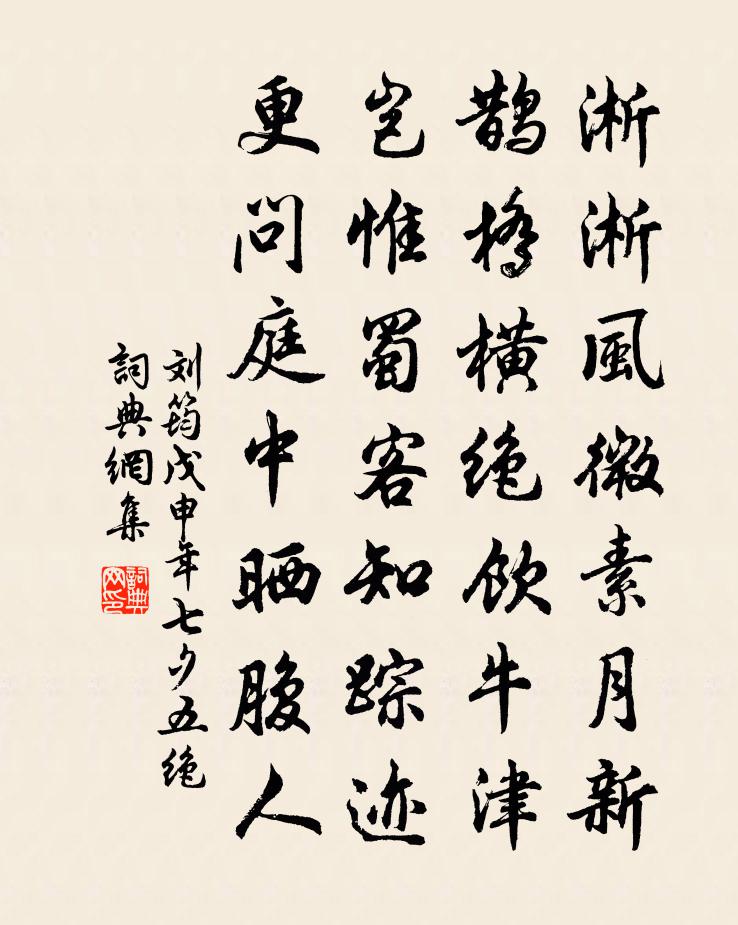 淅淅風微素月新
鵲橋横绝饮牛津
岂惟蜀客知踪迹
更问庭中晒腹人
刘筠戊申年七夕五绝
詞典網集
詞典网印